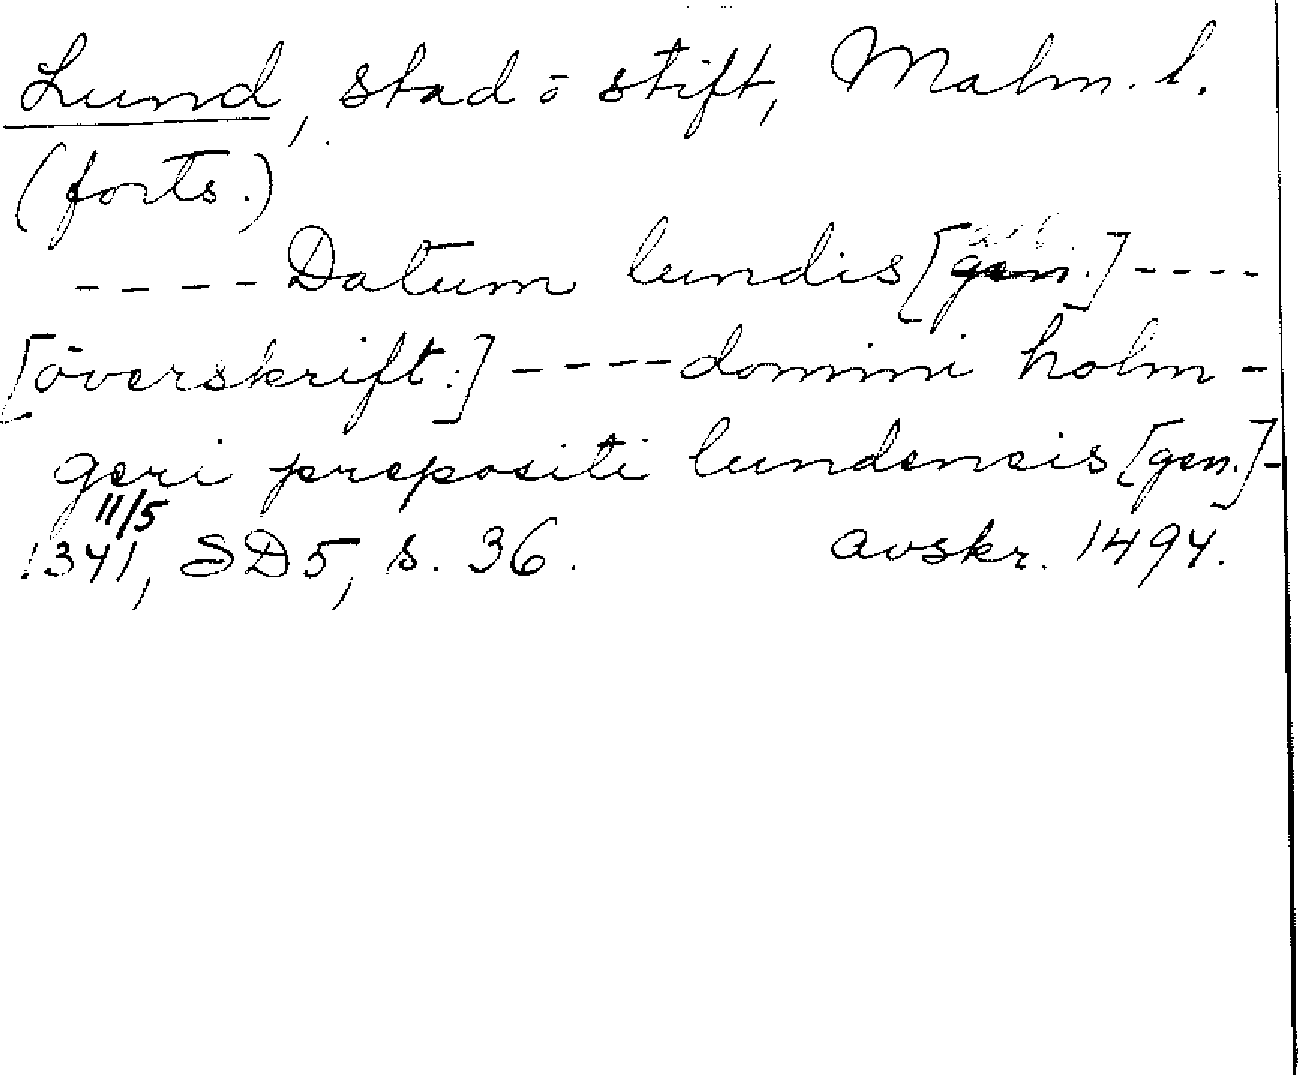 Lund, stad o stift, Malm. l.
(forts.)
---- Datum lundis [gen.] ----
[överskrift:] ---- domini holm-
geri prepositi lundensis [gen.]-
11/5
1341, SD5, s. 36. avskr. 1494.